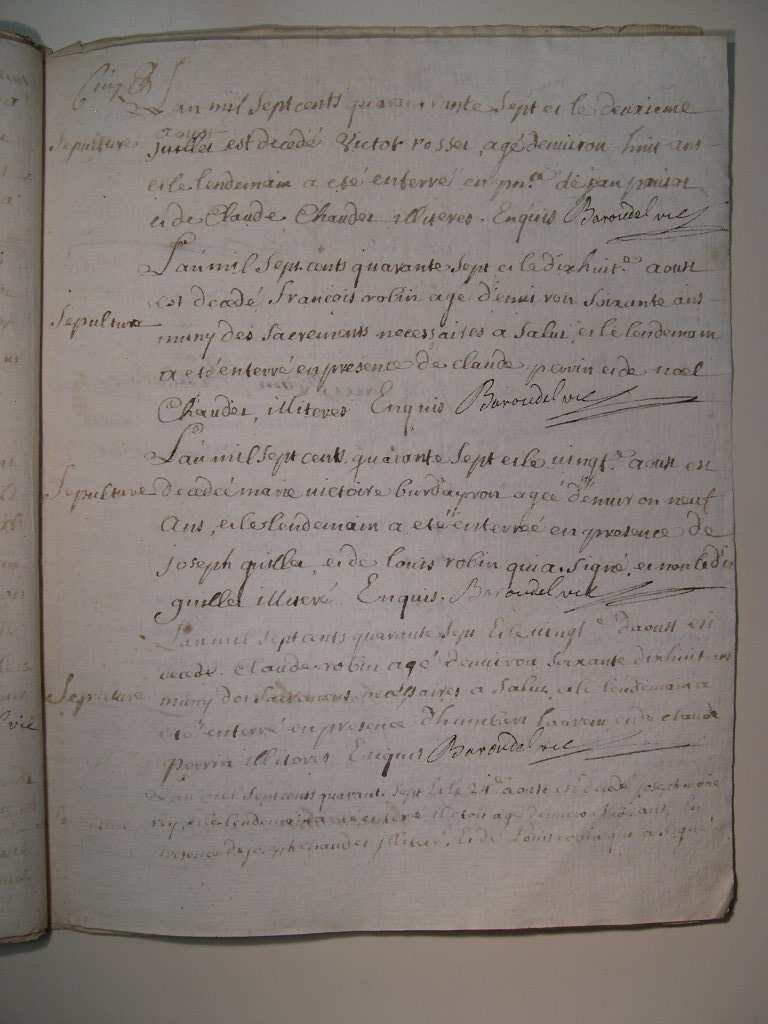 Cinq
L'an mil sept cents quarante sept et le deuxieme
Sepulture aoust
juillet est decedé Victor rosset, agé denviron huit ans
et le lendemain a eté enterré en pnce de jean
et de Claude Chaudet illiteres. Enquis Baroudel vic
L'an mil sept cents quarante sept et le dixhuite aoust
est decedé françois robin age d'enuiron soixante ans
Sepulture muny des sacrements necessaires a salut, et le lendemain
a eté enterré en presence de claude perrin et de noel
Chaudet, illiteres Enquis Baroudel vic
L'an mil sept cents quarante sept et le uingte aoust est
Sepulture decedeé marie uictoire agée d'enuiron neuf
ans, et le lendemain a eté enterreé en presence de
joseph quillet, et de louis robin qui a signé, et non le dit
quillet illiteré Enquis. Baroudel vic
L'an mil sept cents quarante sept et le uingte d'aoust est
decedé claude robin agé d'enuiron soixante dixhuit ans
Sepulture muny des sacrements necessaires a salut, et le lendemain a
eté enterré en presence d'humbert et de claude
perrin illiteres Enquis Baroudel vic
L'an mil sept cents quarante sept et le 21e aoust est decedé joseph
et le lendemain a eté enterré il etoit agé denuiron ans, En
presence de joseph chaudet illiteré, Et de Louis robin qui a signé